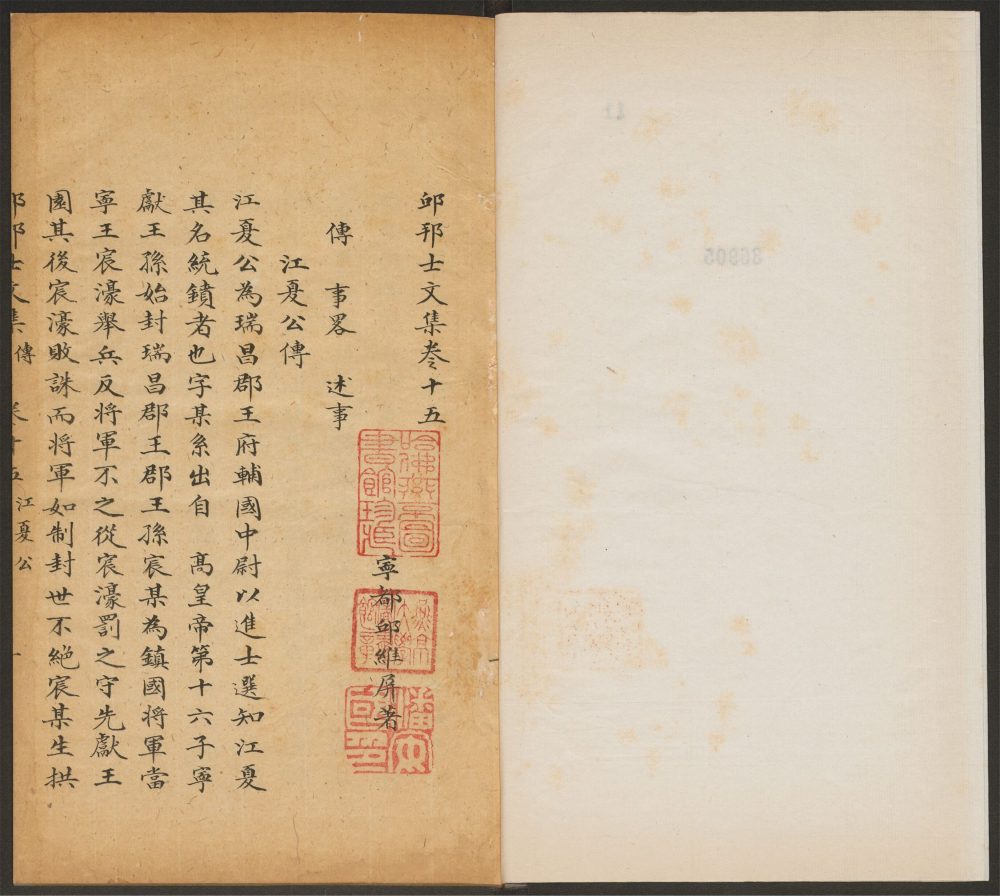 邱邦士文集卷十五
寧都邱維屏著
傳 事畧 述事
江夏公傳
江夏公為瑞昌郡王府輔國中尉以進士選知江夏
其名統鐼者也字某系出自 高皇帝第十六子寧
獻王孫始封瑞昌郡王郡王孫宸某為鎮國將軍當
寧王宸濠舉兵反將軍不之從宸濠罰之守先獻王
園其後宸濠敗誅而將軍如制封世不絕宸某生拱
邱邦士文集 傳 卷十五 江夏公 一
哈佛燕京圖書館珍藏